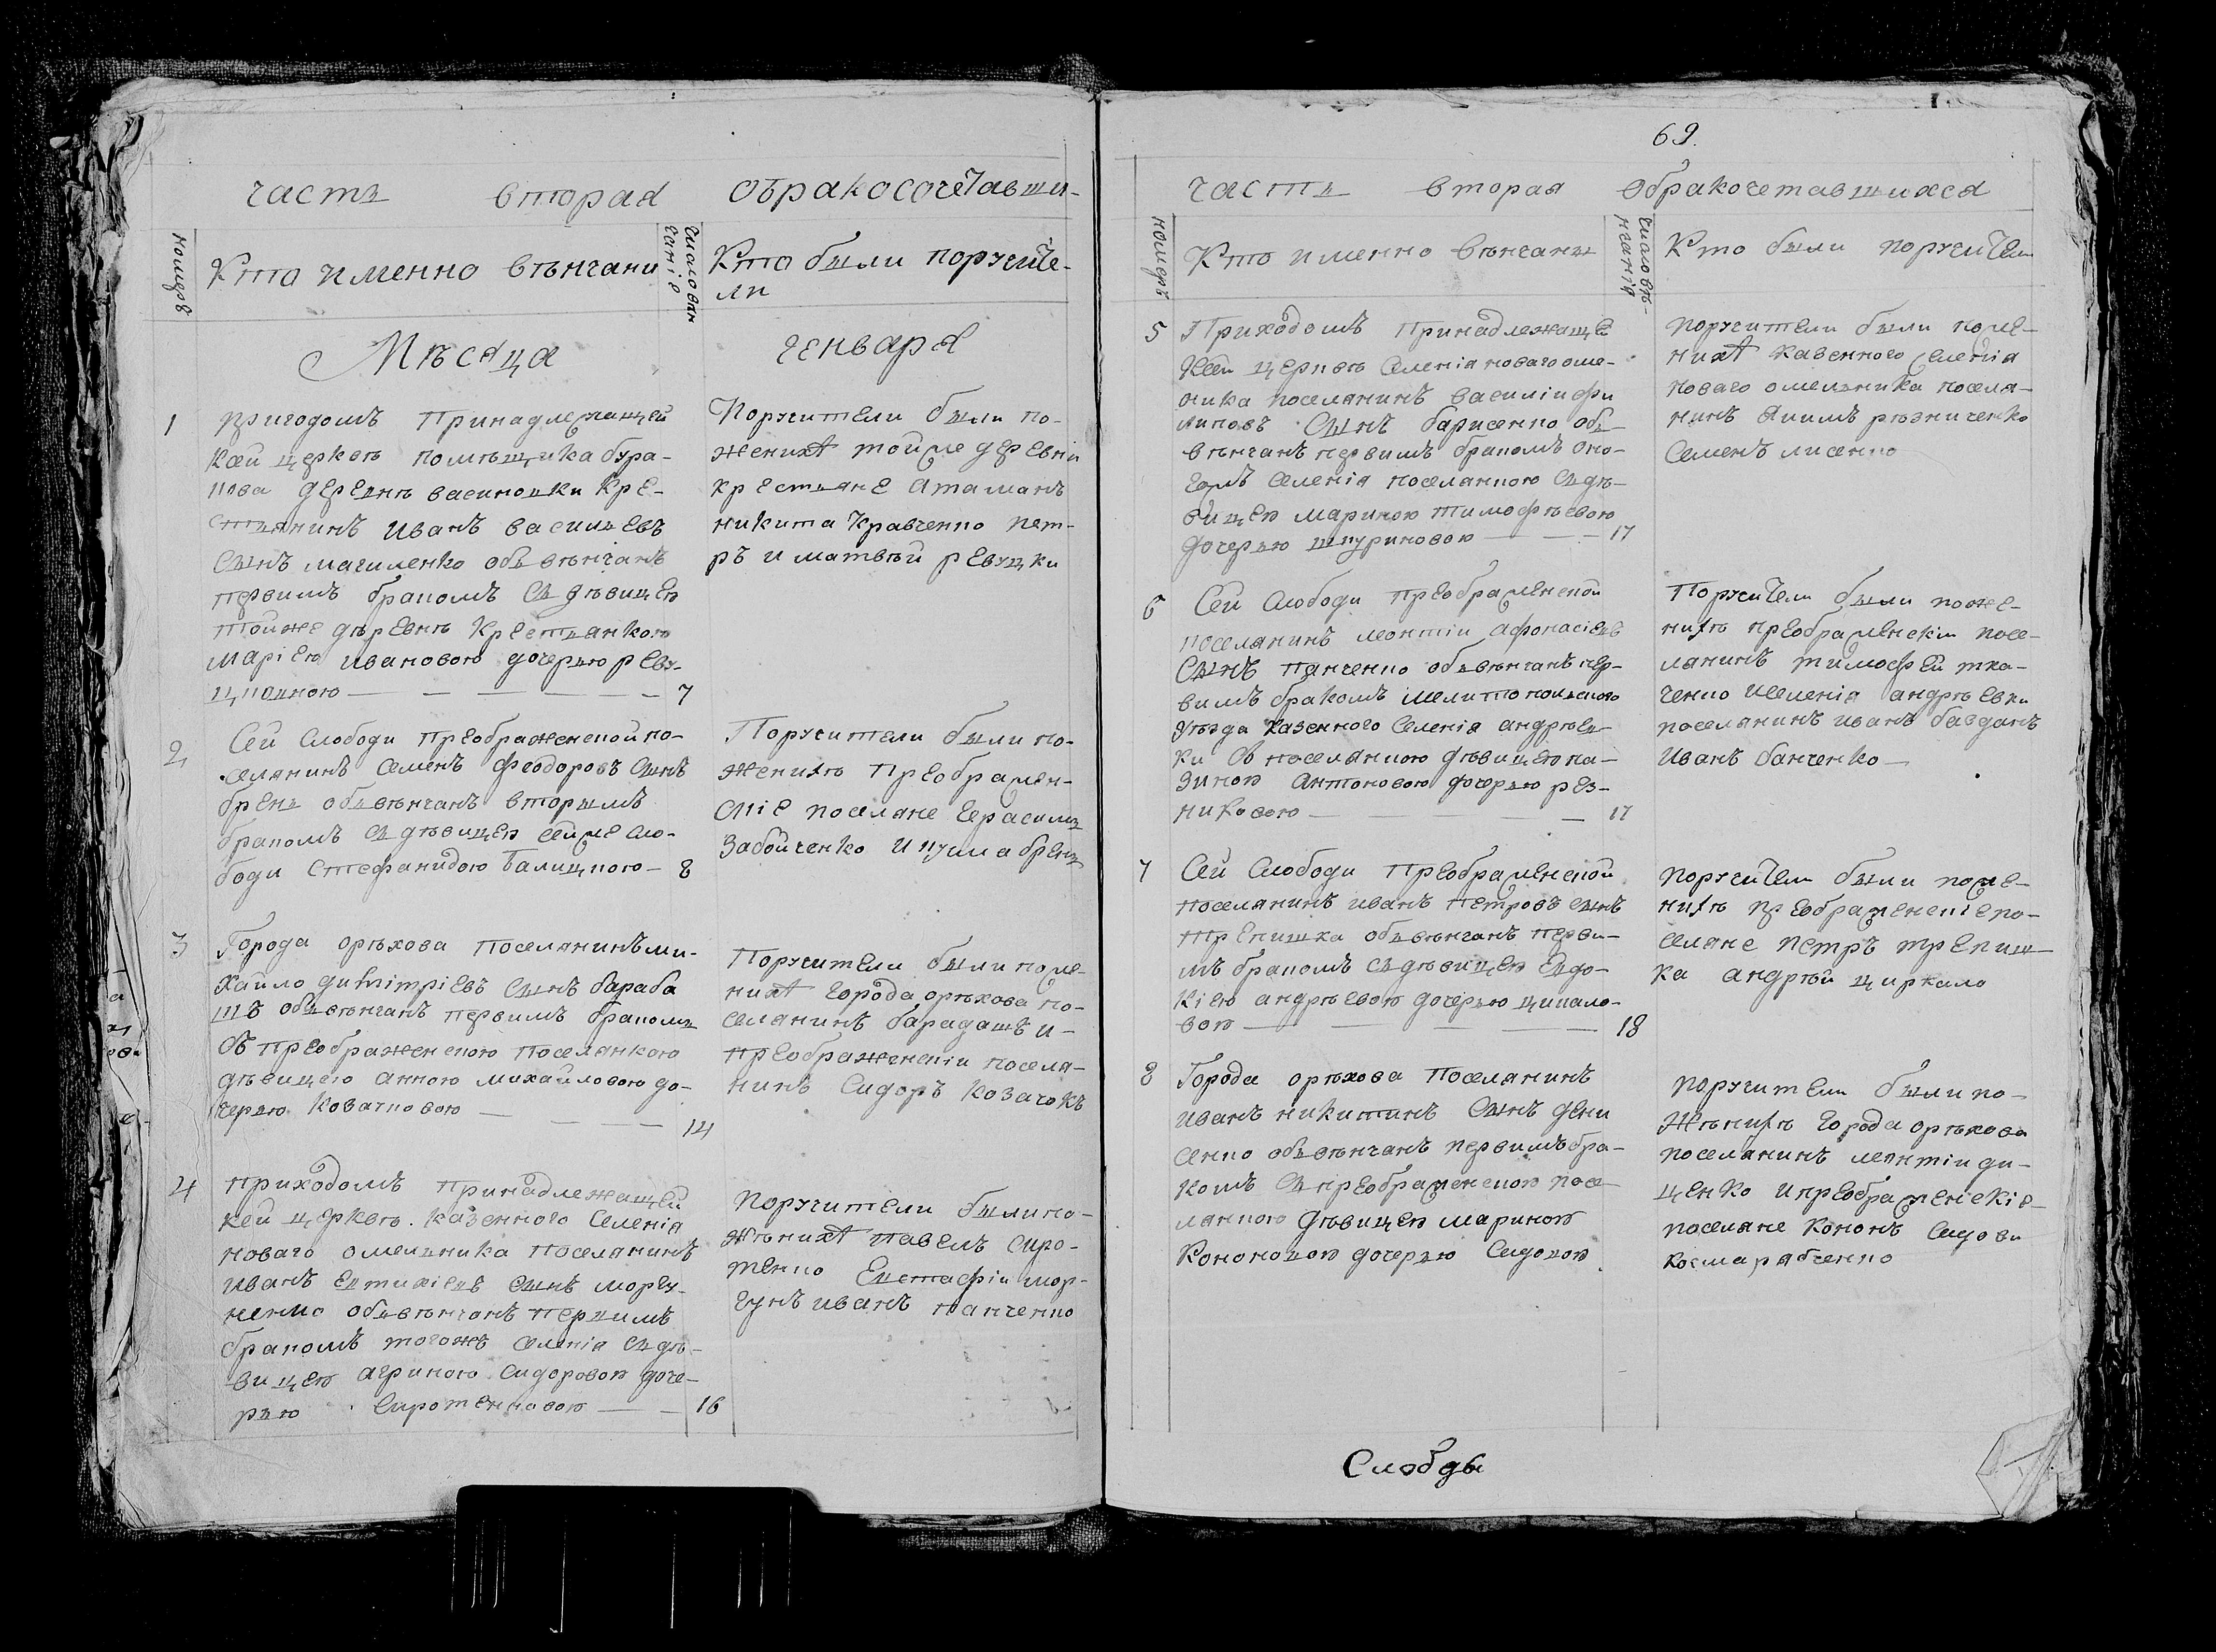 часть вторая обракосочетавши-
номеръ
Кто именно вѣнчани
число вѣн
чаніе
Кто были поручите-
ли
Мѣсяца генваря
1
пригодомъ принадлежащей
Кѣй церквѣ помѣщика бура-
деревнѣ васиновки Кре-
стьянинъ иванъ васильевъ
сынъ магиленко объвѣнчанъ
первимъ бракомъ съ дѣвицею
тойже деревнѣ Крестьянкою
маріею ивановою дочерью реву-
7
Поручители были по-
жениху тойже деревни
крестьяне атаманъ
никита Кравченко пет-
ръ и матвѣй ревуцки
2
Сей Слободи преображенской по-
селянинъ семенъ феодоровъ сынъ
бренъ объвѣнчанъ вторымъ
бракомъ съ дѣвицею сейже сло-
боди стефанидою галицкою — 8
Поручители были по-
женихѣ преображен-
скіе поселяне герасимъ
Забойченко и кузма бренъ
3
Города орѣхова поселянинъ ми-
хайло димитріевъ сынъ бараба
шъ объвѣнчанъ первимъ бракомъ
съ преображенскою поселянкою
дѣвицею анною михайловою до-
черью Ковачковою —
14
Поручители были поже-
ниху города орѣхова по-
селянинъ барадашъ и-
преображенскіи поселя-
нинъ Сидоръ Козачокъ
4
приходомъ принадлежащей
кей церквѣ. казенного селенія
новаго омельника поселянинъ
иванъ евтихіевъ сынъ моргу-
ненко объвѣнчанъ первимъ
бракомъ тогожъ селенія съ дѣ-
вицею агриною сидоровою доче-
рью Сиротенковою — 16
поручители были по-
жѣниху павелъ сиро-
тенко Евстафіи мор-
гунъ иванъ панченко
69.
часть вторая обракочетавшихся
номеръ
Кто именно вѣнчаны
число вѣ-
нчанія
Кто были поручители
5
Приходомъ принадлежаще
Кѣй церквѣ селенія новаго оме-
ника поселянинъ василіи фи
липовъ сынъ барисенко объ
вѣнчанъ первимъ бракомъ оно-
гожъ селенія поселянкою съ дѣ-
вицею мариною тимофѣевою
дочерью шкуриновою — 17
поручители были поже-
ниху казенного селенія
новаго омельника поселя-
нинъ якимъ рѣзниченко
Семенъ лисенко
6
Сей Слободи преображенской
поселянинъ леонтіи афонасіевъ
сынъ панченко объвѣнчанъ пер-
вимъ бракомъ мелитопольского
уѣзда казенного селенія андрѣев-
ки съ поселянкою дѣвицею па-
зиною антоновою дочерью рез-
никовою — 17
Поручители были поже-
нихѣ преображенскіи посе-
лянинъ тимофей тка-
ченко иселенія андрѣевки
поселянинъ иванъ багданъ
иванъ банченко —
7
Сей Слободи преображенской
поселянинъ иванъ петровъ сынъ
трепишка объвѣнчанъ перви-
мъ бракомъ съ дѣвицею Евдо-
кіею андрѣевою дочерью ципало-
вою — 18
поручители были поже-
нихѣ преображенскіе по-
селяне петръ трепиш-
ка андрѣй циркало
8
Города орѣхова поселянинъ
иванъ никитинъ сынъ дени
сенко объвѣнчанъ первимъ бра-
комъ съ преображенскою посе-
лянкою дѣвицею мариною
Кононовою дочерью Сидовою
поручители были по-
жѣнихѣ города орѣхова
поселянинъ леонтіи ди-
ценко и преображенскіе
поселяне кононъ Сидови
косма рябченко
Слобды